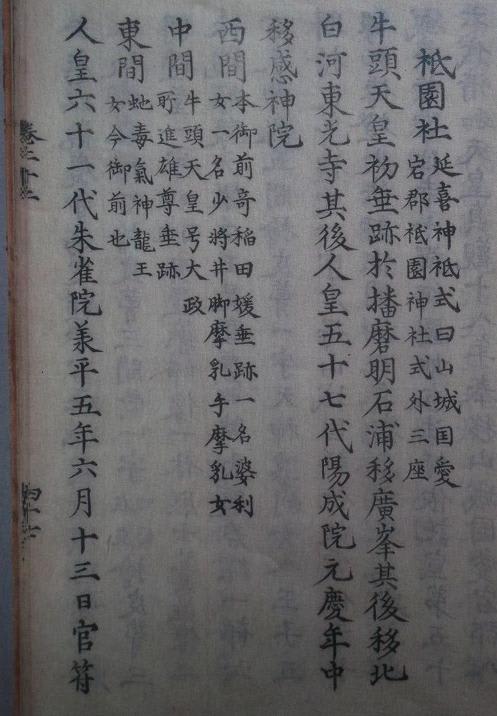 祇園社 延喜神祇式曰山城国愛
宕郡祇園神社式外三座
牛頭天皇初垂跡於播磨明石浦移廣峯其後移北
白河東光寺其後人皇五十七代陽成院元慶年中
移感神院
西間 本御前奇稲田媛垂跡一名婆利
女一名少将井脚摩乳手摩乳女
中間 牛頭天皇号大政
所進雄尊垂跡
東間 虵毒氣神龍王
女今御前也
人皇六十一代朱雀院羕平五年六月十三日官符
巻之十二
四十七